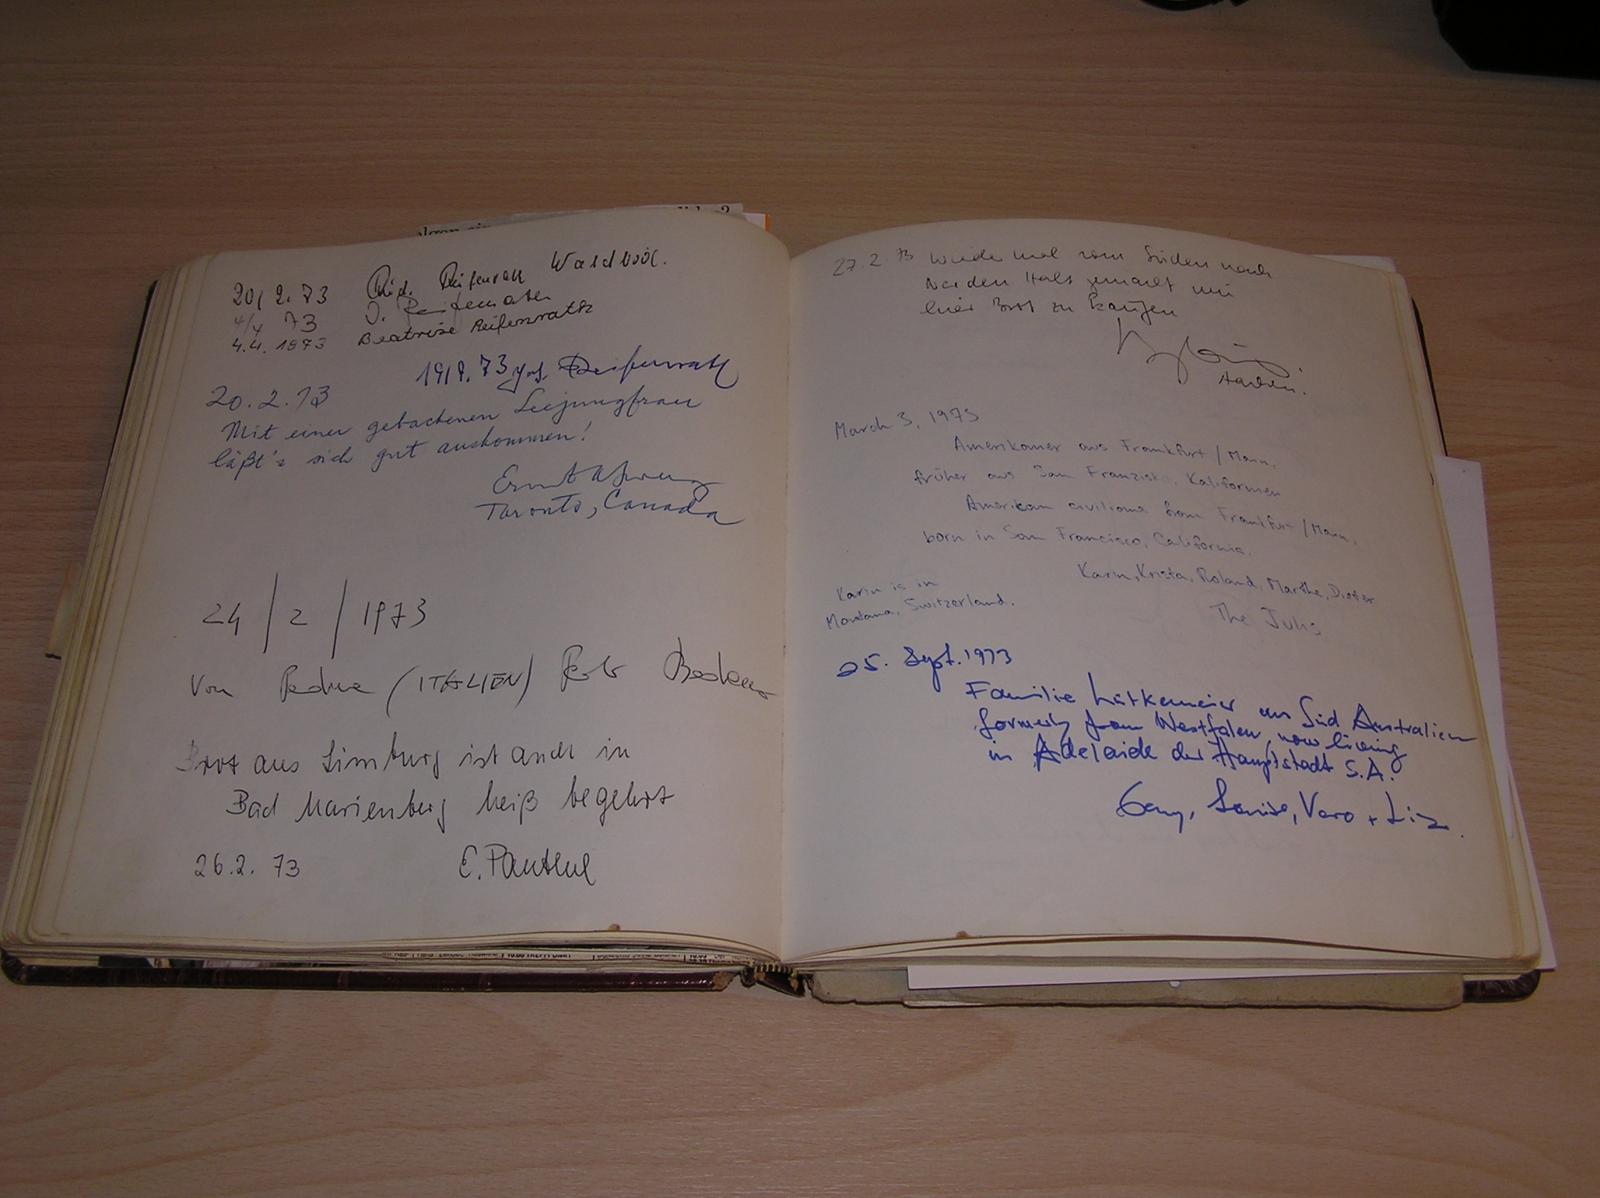 20/2.73 Reifenrath Waldbröl.
4/4 73
4.4. 1973 Beatrise Reifenrath
19/9.73 Reifenrath
20.2.73
Mit einer gebackenen Seejungfrau
läßt's sich gut auskommen!
Ernst
Toronto, Canada
24/2/1973
Von Padua (ITALIEN)
Brot aus Limburg ist auch in
Bad Marienberg heiß begehrt
26.2. 73 E.
27.2.73 wieder mal vom Süden nach
Norden Halt gemacht um
hier Brot zu kaufen
March 3, 1973
Amerikaner aus Frankfurt/Main,
früher aus San Franzisko, Kalifornien
Amerikan civilians from Frankfurt/Main,
born in San Francisco, California.
Karin, Krista, Roland, Marthe, Dieter
Karin is in
Montana, Switzerland.
The Juhs
25. Sept. 1973
Familie Lütkemeier aus Süd Australien
formerly from Westfalen now living
in Adelaide der Hauptstadt S.A.
Louise, Vero + Liz.